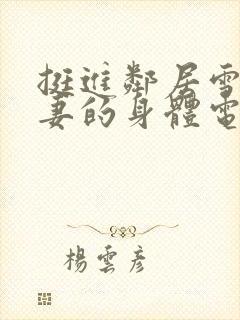 挺進鄰居雪
妻的身體電
楊雲彥